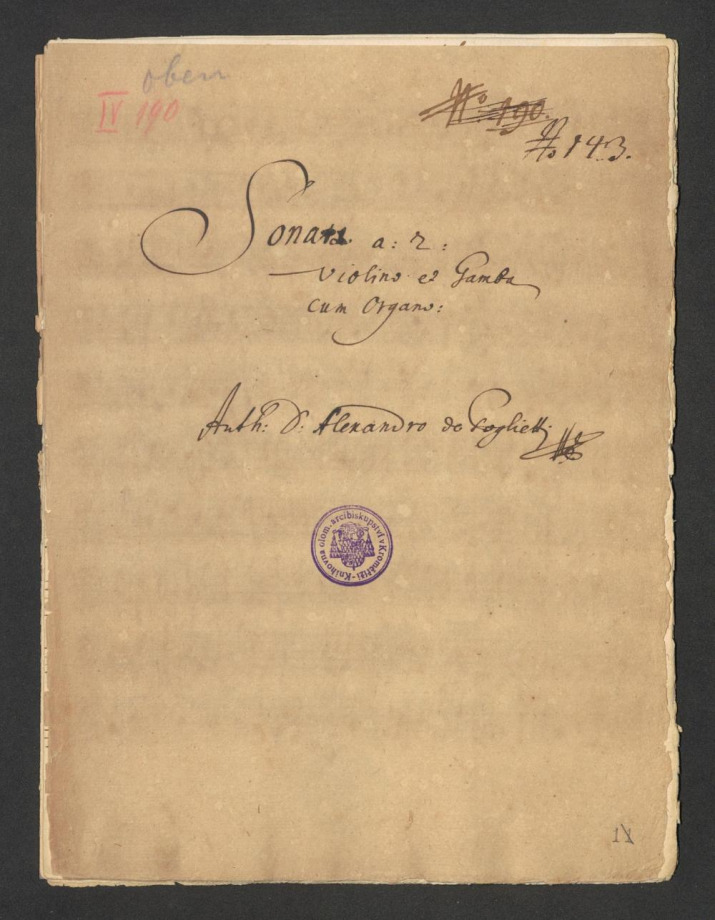 oben
IV 190
No 190.
No 143.
Sonata a: 2:
Violino et Gamba
cum Organo:
Auth: D: Alexandro de Poglietti
Knihovna olom. arcibiskupství v Kroměříži
11